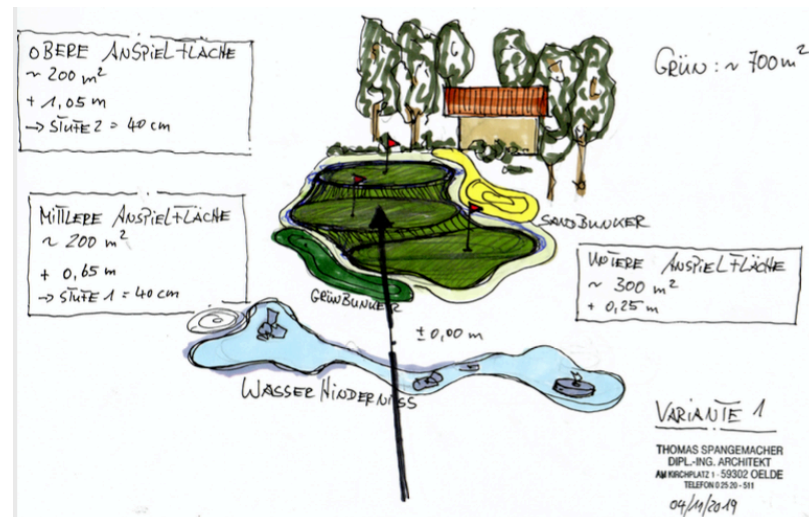 OBERE ANSPIELFLÄCHE
~ 200 m²
+ 1,05 m
→ STUFE 2 = 40 cm
GRÜN: ~ 700 m²
MITTLERE ANSPIELFLÄCHE
~ 200 m²
+ 0,65 m
→ STUFE 1 = 40 cm
SANDBUNKER
UNTERE ANSPIELFLÄCHE
~ 300 m²
+ 0,25 m
GRÜNBUNKER
±0,00 m
WASSERHINDERNISS
VARIANTE 1
THOMAS SPANGEMACHER
DIPL.-ING. ARCHITEKT
AM KIRCHPLATZ 1 · 59302 OELDE
TELEFON 0 25 20 - 511
04/11/2019